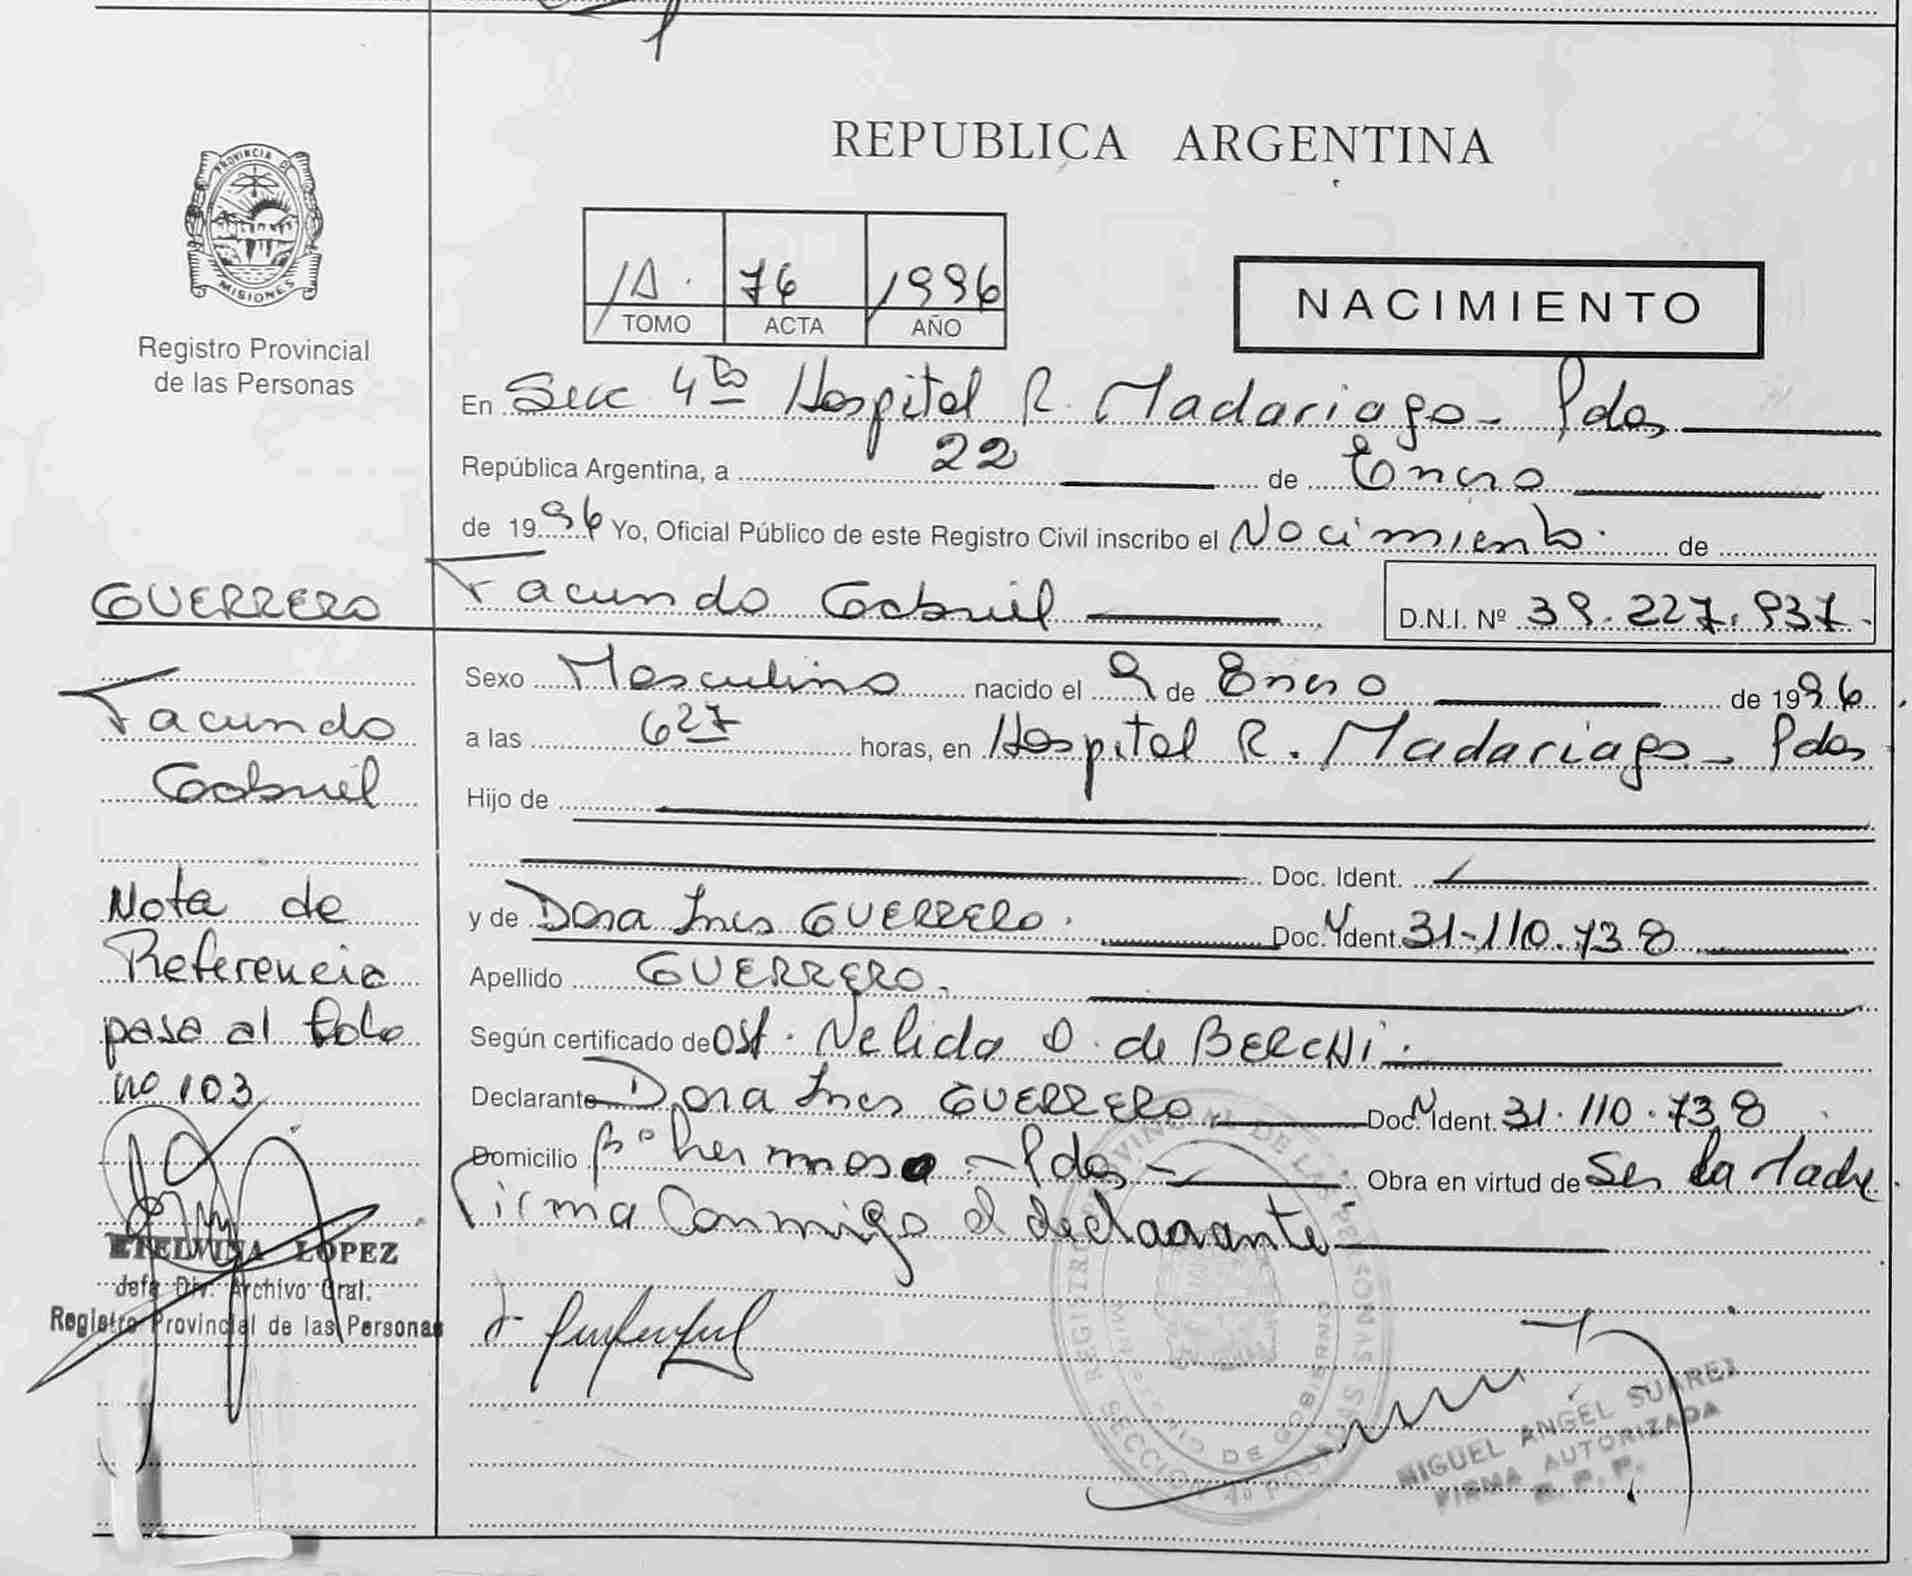 REPUBLICA ARGENTINA
PROVINCIA DE MISIONES
Registro Provincial
de las Personas
1A. 76 1996
TOMO ACTA AÑO
NACIMIENTO
En Secc 4ta Hospital R. Madariaga - Pdas
República Argentina, a 22 de Enero
de 1996 Yo, Oficial Público de este Registro Civil inscribo el Nacimiento. de
GUERRERO Facundo Gabriel D.N.I. Nº 39.227.937.
Sexo Masculino nacido el 9 de Enero de 1996
a las 6 27 horas, en Hospital R. Madariaga - Pdas
Hijo de
Doc. Ident.
y de Dora Ines GUERRERO. Doc. Ident. 31-110.738
Apellido GUERRERO.
Según certificado de Ost. Nelida O. de BERCHi.
Declarante Dora Ines GUERRERO Doc. Ident. 31.110.738
Domicilio Bº hermoso - Pdas - Obra en virtud de Ser la Madre
Firma Conmigo el declarante
Facundo
Gabriel
Nota de
Referencia
pase al folio
nº 103
ETELVINA LOPEZ
Jefa Div. Archivo Gral.
Registro Provincial de las Personas
REGISTRO PROVINCIAL DE LAS PERSONAS
MINISTERIO DE GOBIERNO
SECCION 4ª POSADAS
MIGUEL ANGEL SUAREZ
FIRMA AUTORIZADA
R. P. P.